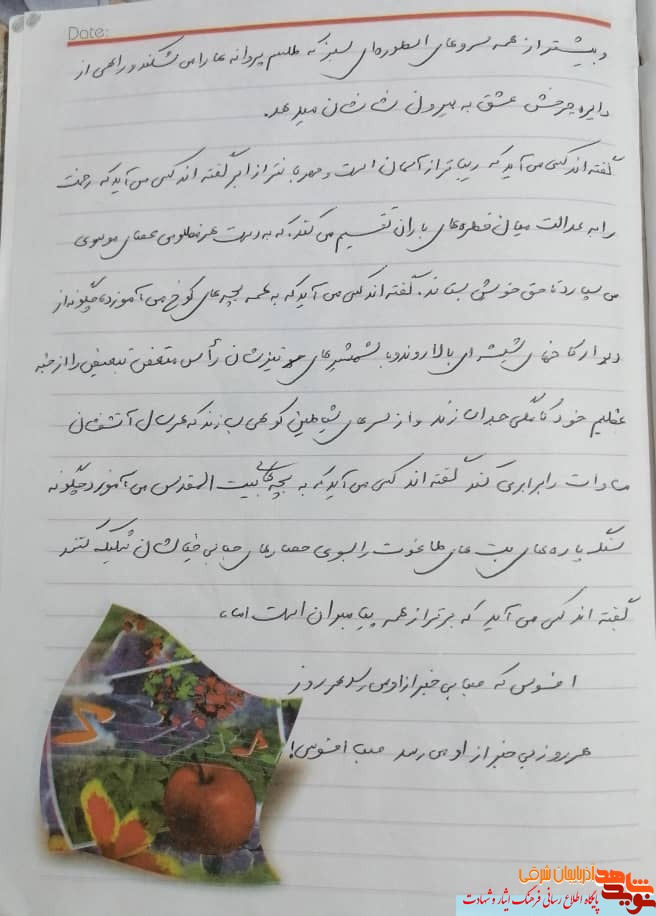 Date:
و بیشتر از همه سروهای اسطوره‌ای سبز که طلسم پروانه‌ها را می شکند و راهی از
دایره چرخش عشق به بیرون نشانشان میدهد.
گفته اند کسی می آید که زیباتر از آسمان است و مهربانتر از ابر گفته اند کسی می آید که رحمت
را به عدالت میان قطره‌های باران تقسیم می کند. که به دست هر مظلومی عصای موسوی
می سپارد تا حق خویش بستاند. گفته اند کسی می آید که به همه بچه‌های کوخ می آموزد تا چگونه از
دیوار کاخهای شیشه ای بالا روند و با شمشیرهای تیزشان رأس تبعیض را از
عظیم خود زند و از سرهای شیاطین کوهی بسازند که هر سال آتشفشان
مساوات را برابری کند گفته اند کسی می آید که به بچه‌های بیت المقدس می آموزد چگونه
سنگ پاره‌های بت های طاغوت را بسوی حصارهای خیالشان شلیک کنند
گفته اند کسی می آید که برتر از همه پیامبران است اما،
افسوس که بی خبر از او می رسد هر روز
هر روز بی خبر از او می رسد افسوس!
شاهد
نوید
آذربایجان شرقی
پایگاه اطلاع رسانی فرهنگ ایثار و شهادت